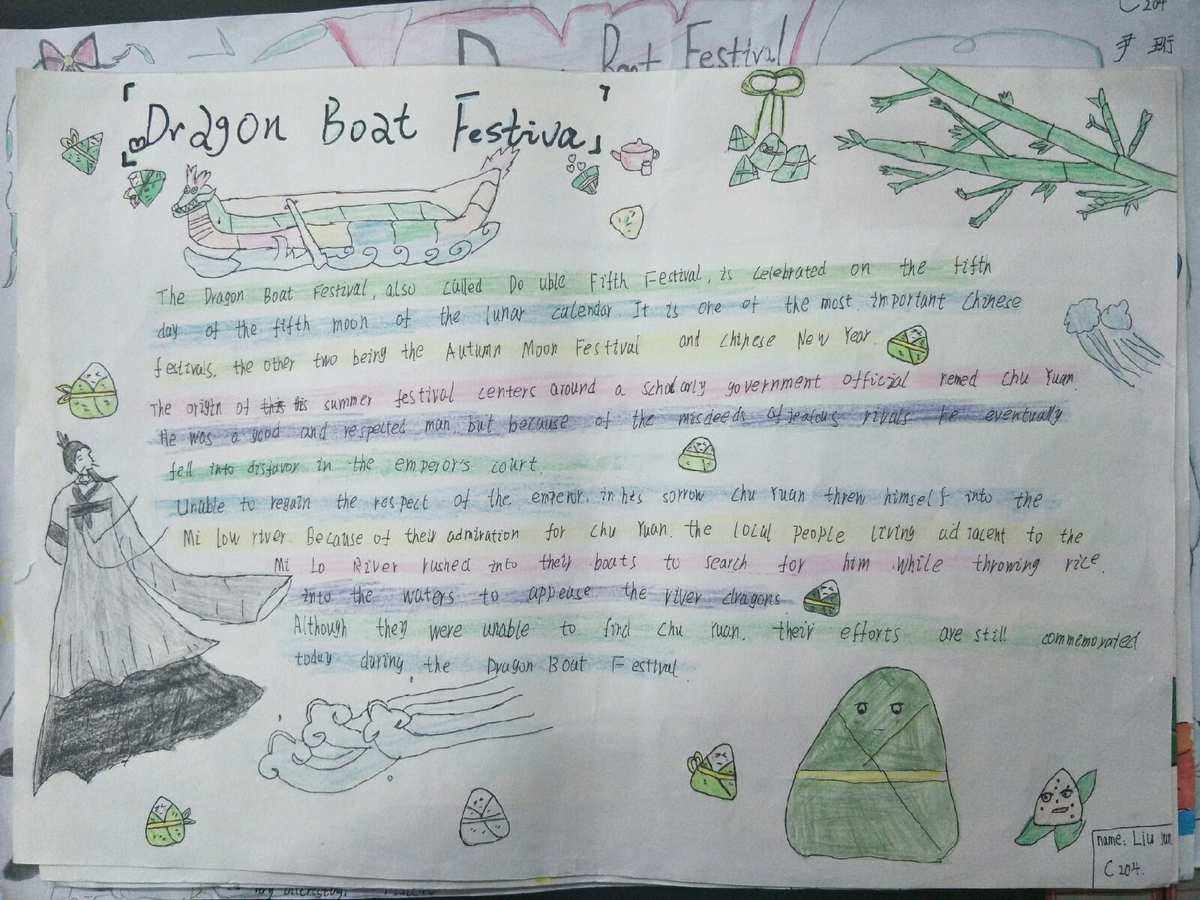 C204
尹珩
Boat Festival
Dragon Boat Festival
The Dragon Boat Festival, also called Do uble Fifth Festival, is celebrated on the fifth
day of the fifth moon of the lunar calendar. It is one of the most important Chinese
festivals, the other two being the Autumn Moon Festival and Chinese New Year.
The origin of summer festival centers around a scholarly government official nemed Chu Yuan.
He was a good and respected man, but because of the misdeeds of jealous rivals he eventually
fell into disfavor in the emperor's court.
Unable to regain the respect of the emperor, in his sorrow Chu Yuan threw himself into the
Mi Low river. Because of their admiration for Chu Yuan, the local people living adjacent to the
Mi Lo River rushed into their boats to search for him while throwing rice
into the waters to appease the river dragons.
Although they were unable to find Chu Yuan, their efforts are still commemorated
today during the Dragon Boat Festival.
name: Liu
C204.